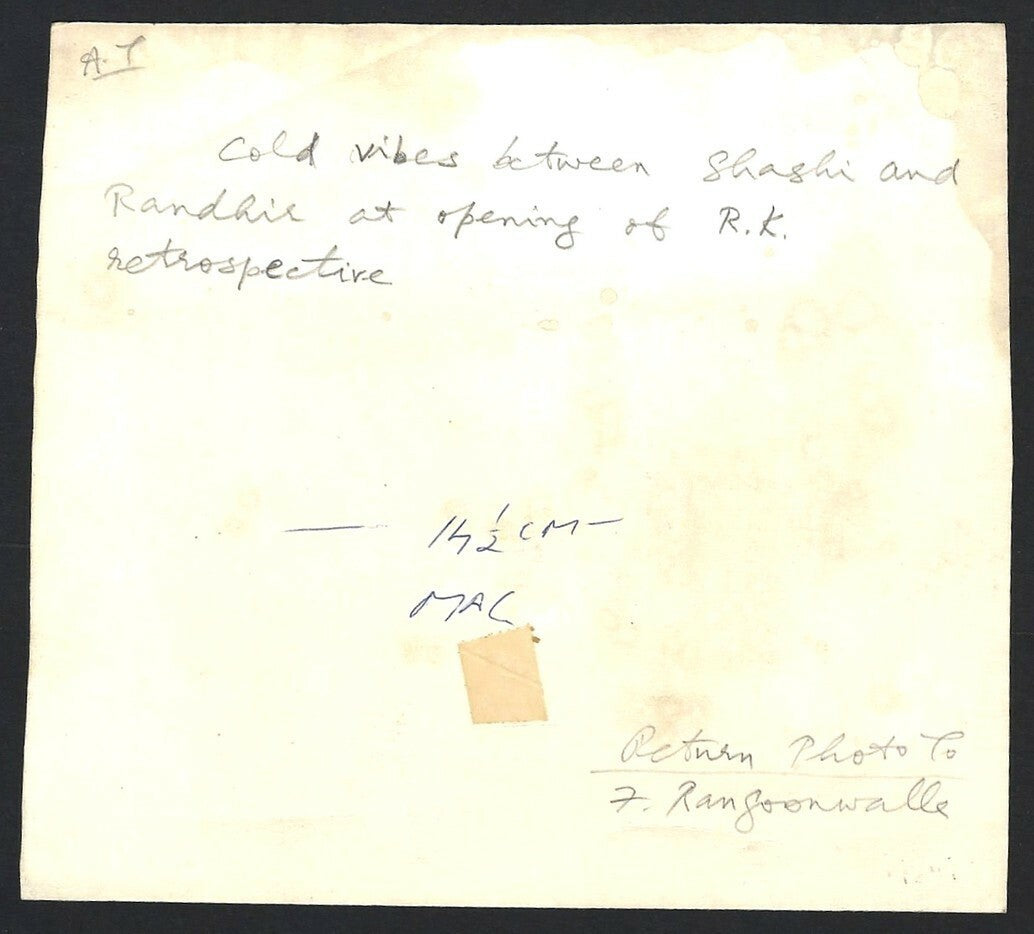 A.T
Cold vibes between Shashi and
Randhir at opening of R.K.
retrospective
— 14 1/2 CM —
MAC
Return Photo To
F. Rangoonwalla